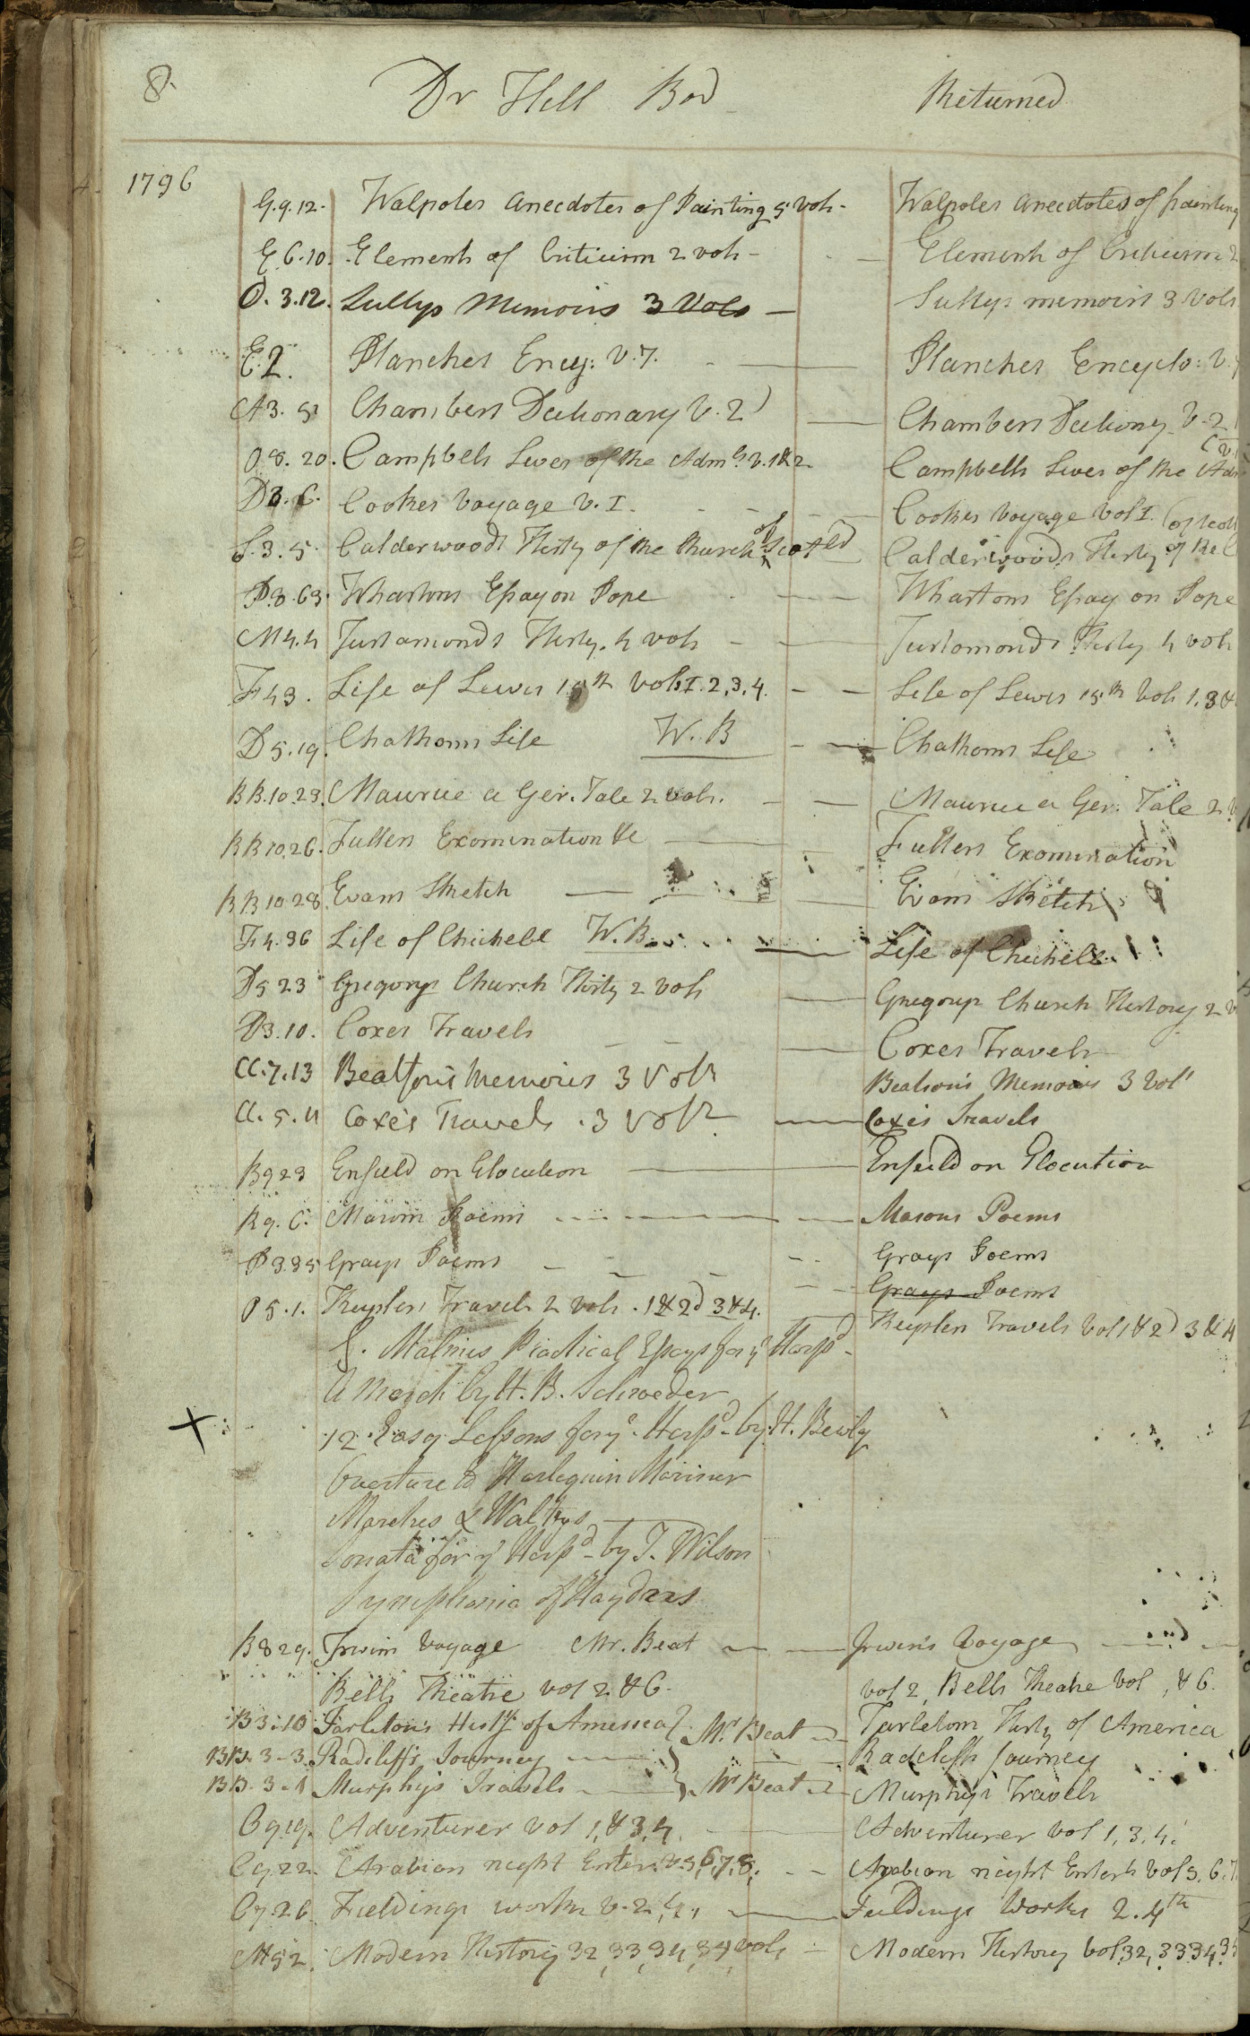 8. Dr Hill Bod Returned
1796
G.9.12. Walpoles Anecdotes of Painting 5 Vols. Walpoles Anecdotes of painting
E.6.10. Elements of Criticism 2 vols - Elements of Criticism 2
O.3.12. Sullys Memoirs 3 Vols - Sullys memoirs 3 Vols
E.2. Planches Ency: V.7. Planches Encyclo: V.7
A3.5 Chambers Dictionary V.2 Chambers Dictiony V.2
O8.20. Campbels Lives of the Adm.ls v.1&2 Campbells Lives of the Adm
D3.6. Cookes Voyage V.I. Cookes Voyage Vol I.
S.3.5. Calderwoods Histy of the Church of Scotld Calderwoods Histy of the C of Scotl
P.3.63. Whartons Essay on Pope Whartons Essay on Pope
M4.4 Justamonds Histy. 4 vols - Justamonds Histy 4 vols
F43. Life of Lewis 15th Vols I.2,3,4. Life of Lewis 15th Vols 1.3&
D5.19. Chathams Life W.B Chathams Life
BB.10.23. Maurice a Ger. Tale 2 vols. Maurice a Ger. Tale 2 v
BB10.26. Fullers Examination &c Fullers Examination
BB1028. Evans Sketch Evans Sketch
F4.36 Life of Chichele W.B. Life of Chichele
D523 Gregorys Church Histy 2 vols Gregorys Church History 2 v
D3.10. Coxes Travels Coxes Travels
CC.7.13 Beatson's Memoirs 3 Vols Beatson's Memoirs 3 Vols
CC.5.11 Coxe's Travels . 3 Vols Coxe's Travels
B923 Enfield on Elocution Enfield on Elocution
R9.6. Masons Poems Masons Poems
P335 Grays Poems Grays Poems
Grays Poems
O5.1. Keyslers Travels 2 vols. 1&2d 3&4. Keyslers Travels Vol 1&2d 3&4
J. Malmes Practical Essays for ye Harpd
A March by H. B. Schroeder
X 12 Easy Lessons for ye Harpd by H. Bewly
Overture to Harlequin Mariner
Marches & Waltzes
Sonata for ye Harpd by T. Wilson
Symphonia of Haydens
B829. Irwins Voyage Mr. Beat Irwin's Voyage
Bells Theatre vol 2 & 6. vol 2, Bells Theatre Vol , & 6.
B3.10 Tarleton's Histy of America Mr Beat Tarletons Histy of America
BB.3-3. Radcliff's Journey Radcliffs Journey
BB.3-1 Murphy's Travels Mr Beat Murphy's Travels
C919. Adventurer vol 1,&3,4. Adventurer vol 1,3,4.
C922. Arabian night Enter. v.5,6,7,8. Arabian night Enterts Vol 5.6.7
O726. Fieldings works V.2,4. Fieldings Works 2.4th
M52. Modern History 32,33,34,37, vols Modern History Vol 32,33 34,3